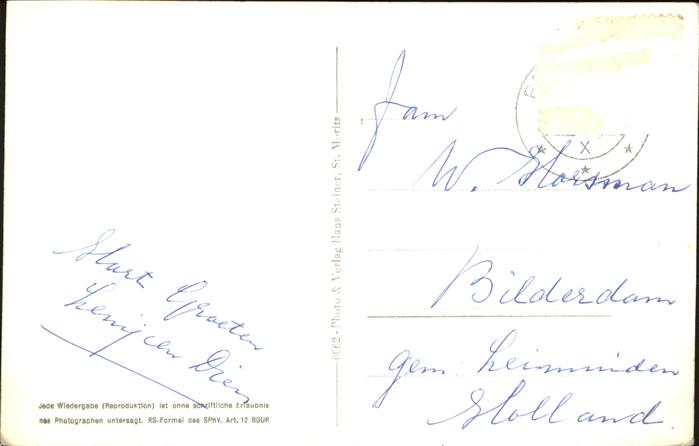 Hart. Groeten
Lenij en Dien
Jede Wiedergabe (Reproduktion) ist ohne schriftliche Erlaubnis
des Photographen untersagt. RS-Formel des SPHV. Art. 12 BGUR
6662 - Photo & Verlag Hans Steiner, St. Moritz
Fam
W. Horsman
Bilderdam
gem. Leimuiden
Holland.
X